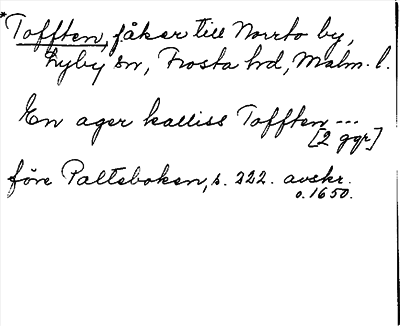 *Tofften, fåker till Norrto by,
Lyby sn, Frosta hd, Malm. l.
En ager kalliss Tofften ---
[2 ggr]
före Palteboken, s. 222. avskr.
o. 1650.